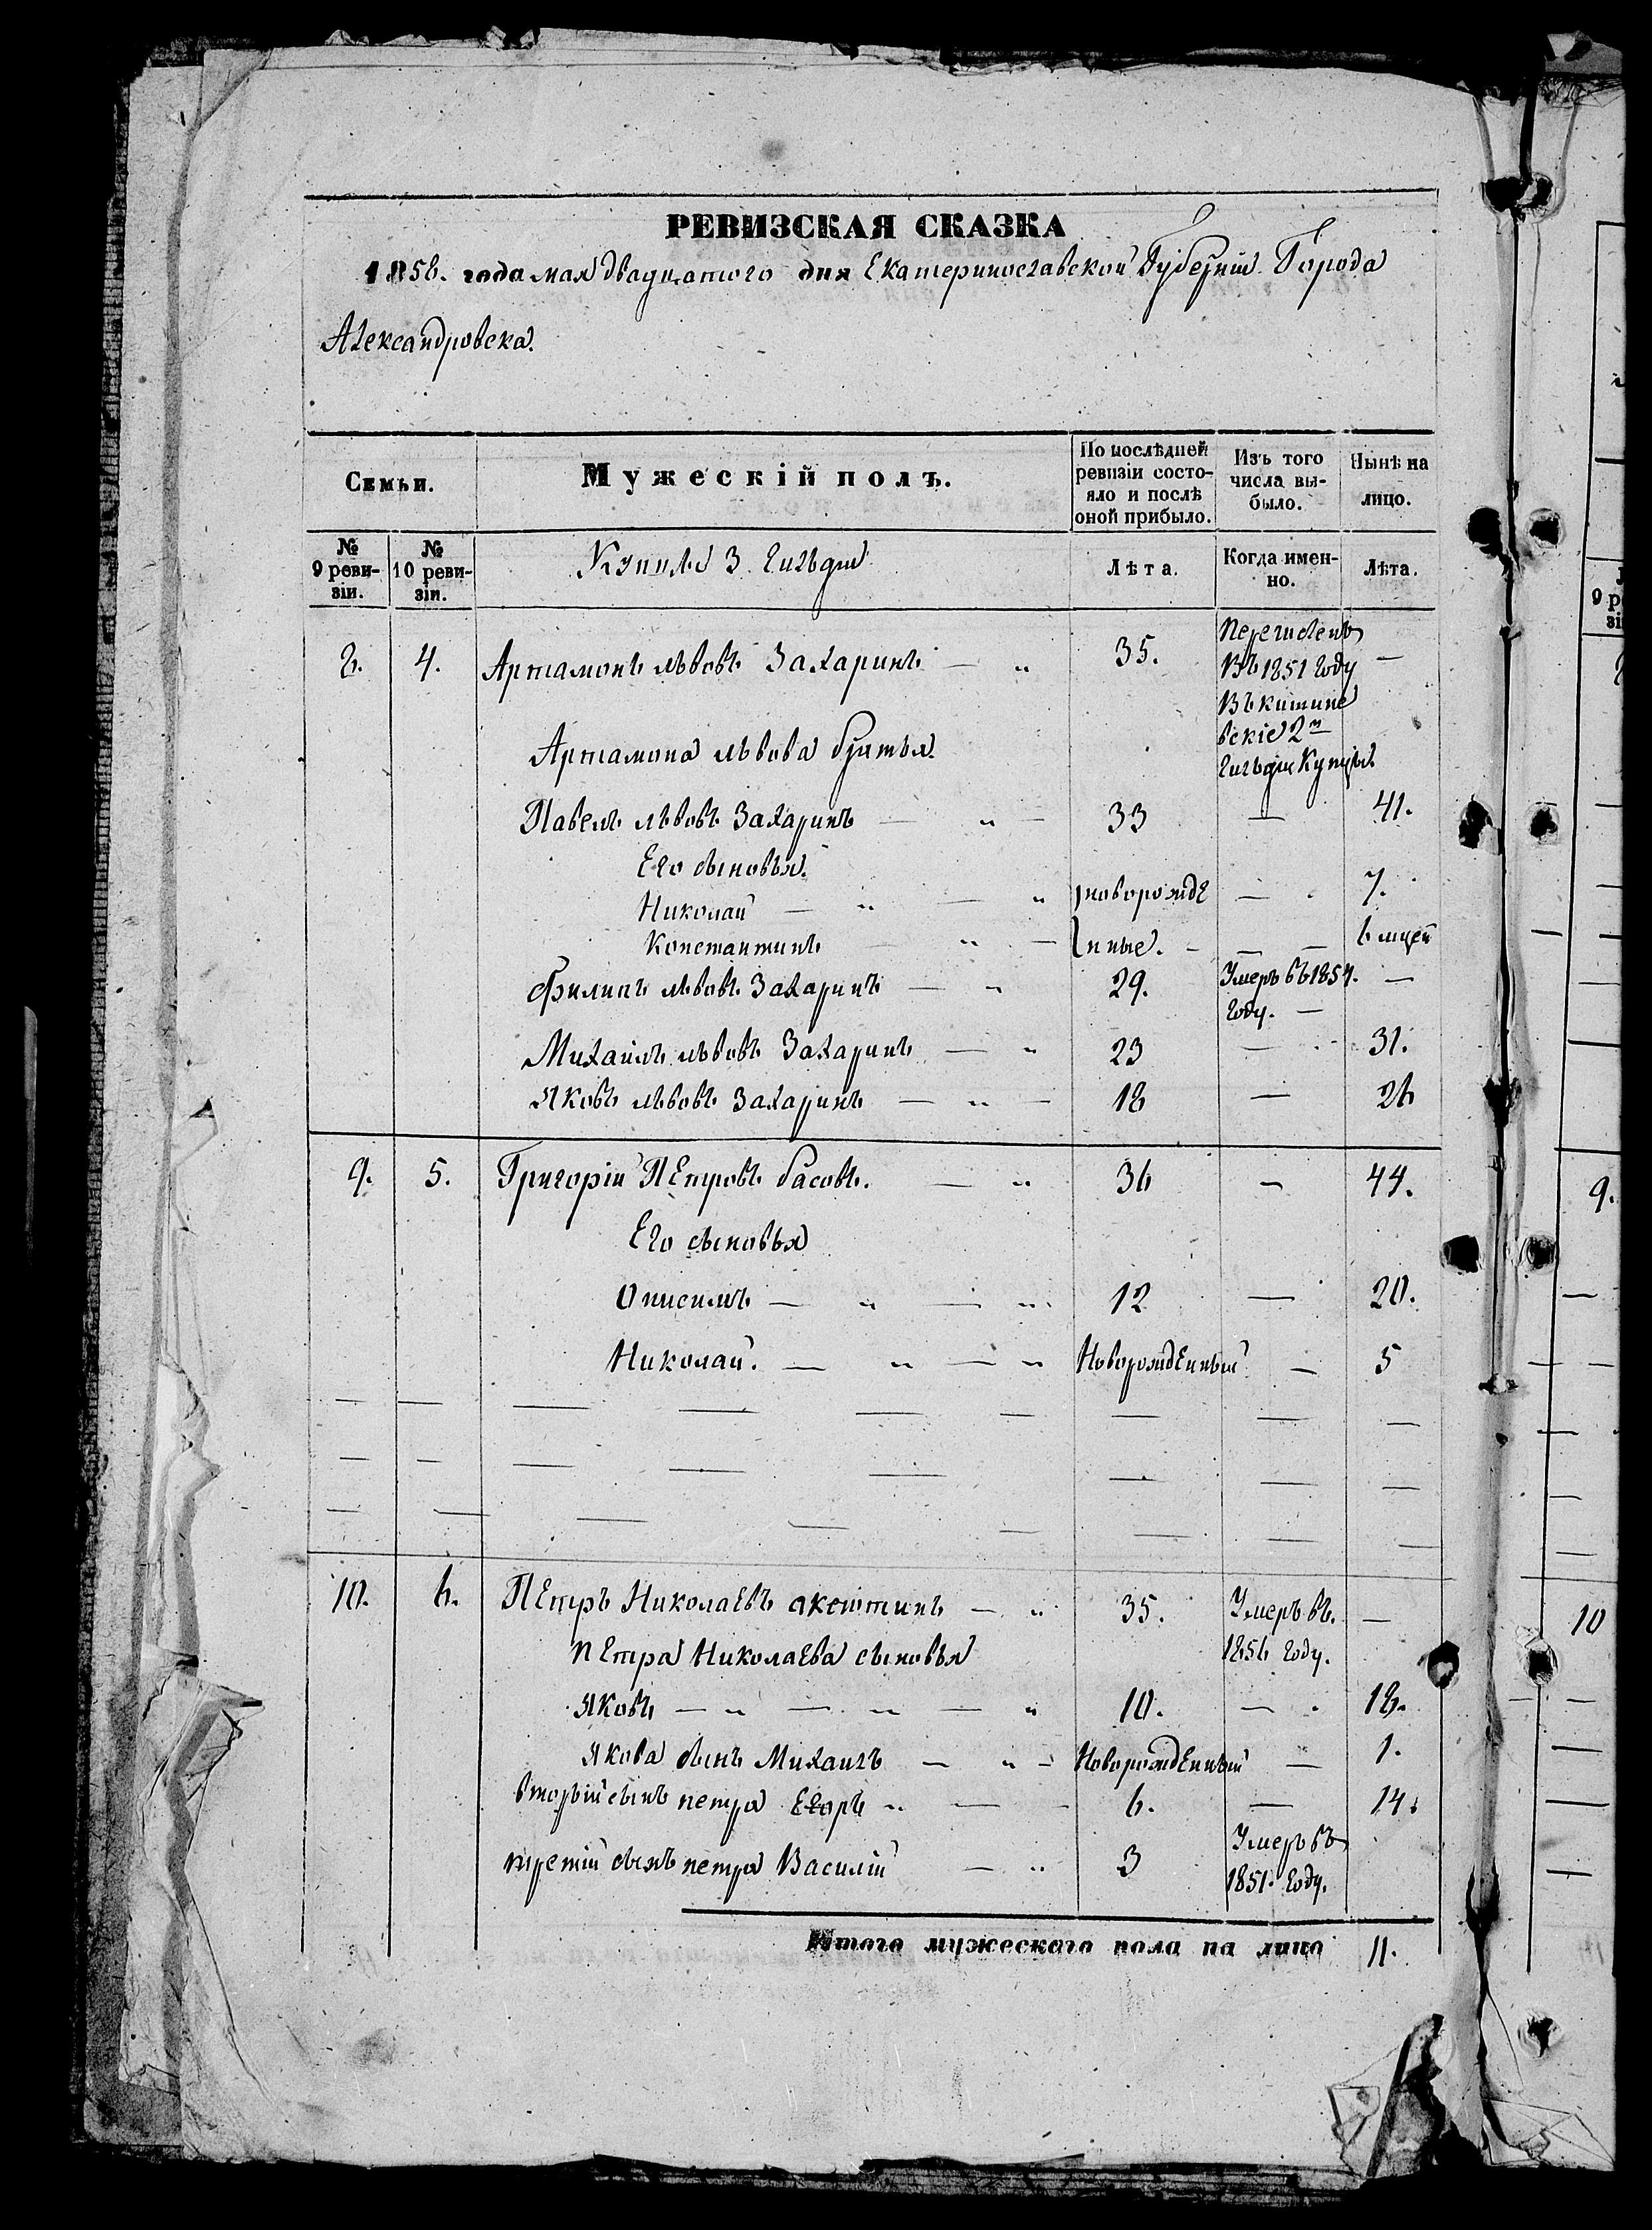 РЕВИЗСКАЯ СКАЗКА
1858. года мая двадцатого дня Екатеринославской Губерніи Города
Александровска.
Семьи.
Мужескій полъ.
По послѣдней ревизіи состояло и послѣ оной прибыло.
Изъ того числа выбыло.
Нынѣ на лицо.
№ 9 ревизіи.
№ 10 ревизіи.
Купцы 3 гильдіи
Лѣта.
Когда именно.
Лѣта.
8. 4. Артамонъ львовъ Захаринъ — „ 35. Перечисленъ въ 1851 году въ кишиневскіе 2й гильдіи купцы. —
Артамона львова братья.
Павелъ львовъ Захаринъ — „ — 33 — 41.
Его сыновья.
Николай — „ — „ новорожде — 7.
Константинъ — „ — нные. — — — 6 мцей
Филипъ львовъ Захаринъ — „ 29. Умеръ въ 1854. году. — —
Михаилъ львовъ Захаринъ — „ 23 — 31.
Яковъ львовъ Захаринъ — „ — 18 — 26
9. 5. Григорій Петровъ басовъ. — „ 36 — 44.
Его сыновья
Онисимъ — „ — „ 12 — 20.
Николай. — „ — „ Новорожденный — 5
10. 6. Петръ Николаевъ — „ 35. Умеръ въ 1856 году. —
Петра Николаева сыновья
Яковъ — „ — „ — „ 10. — 18.
Якова сынъ Михаилъ — „ — Новорожденный — 1.
вторый сынъ петра Егоръ „ — — 6. — 14.
третій сынъ петра Василій — „ 3 Умеръ въ 1851. году.
Итого мужескаго пола на лицо 11.
9 ре
зі
9.
10